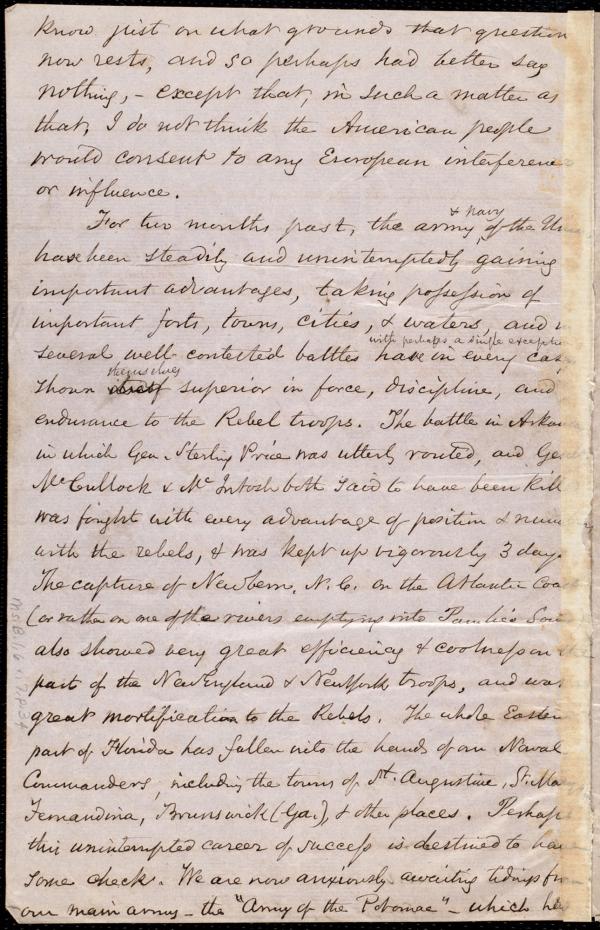 know just on what grounds that question
now rests, and so perhaps had better say
nothing, - except that, in such a matter as
that, I do not think the American people
would consent to any European interference
or influence.
For two months past, the army & navy of the Un
have been steadily and uninterruptedly gaining
important advantages, taking possession of
important forts, towns, cities, & waters, and
several well contested battles have in every cas
with perhaps a single exceptio
shown themselves superior in force, discipline, and
endurance to the Rebel troops. The battle in Arkan
in which Gen. Sterling Price was utterly routed, and Ge
McCullock & McIntosh both said to have been kill
was fought with every advantage of position & num
with the rebels, & was kept up vigorously 3 days
The capture of Newbern, N.C. on the Atlantic Coa
(or rather on one of the rivers emptying into Pamlico Sou
also showed very great efficiency & coolness on
part of the New England & New York troops, and was
great mortification to the Rebels. The whole Eastern
part of Florida has fallen into the hands of our Naval
Commanders, including the towns of St. Augustine, St. Ma
Fernandina, Brunswick (Ga.), & other places. Perhaps
this uninterrupted career of success is destined to have
some check. We are now anxiously awaiting tidings fr
our main army - the "Army of the Potomac" - which has